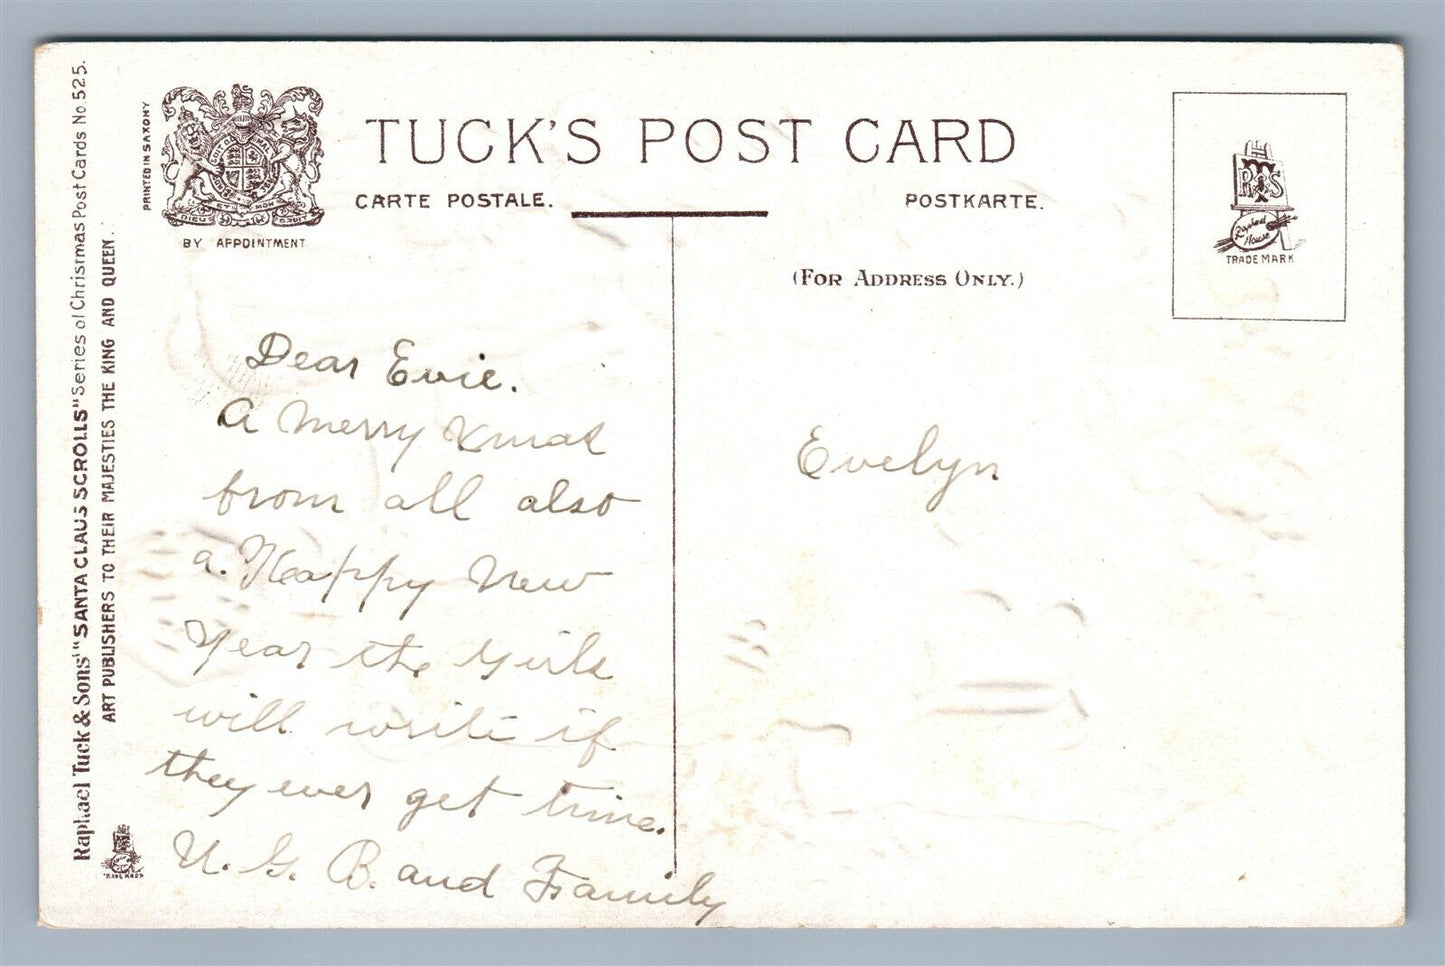 Raphael Tuck & Sons' "SANTA CLAUS SCROLLS" Series of Chrisrmas Post Cards No 525.
ART PUBLISHERS TO THEIR MAJESTIES THE KING AND QUEEN.
PRINTED IN SAXONY
DIEU ET MON DROIT
BY APPOINTMENT
TUCK'S POST CARD
CARTE POSTALE.
POSTKARTE.
(FOR ADDRESS ONLY.)
RTS
Raphael
House
TRADE MARK
Dear Evie.
A Merry Xmas
from all also
a. Happy New
Year the girls
will write if
they ever get time.
U. G. B. and Family
Evelyn
TRADE MARK